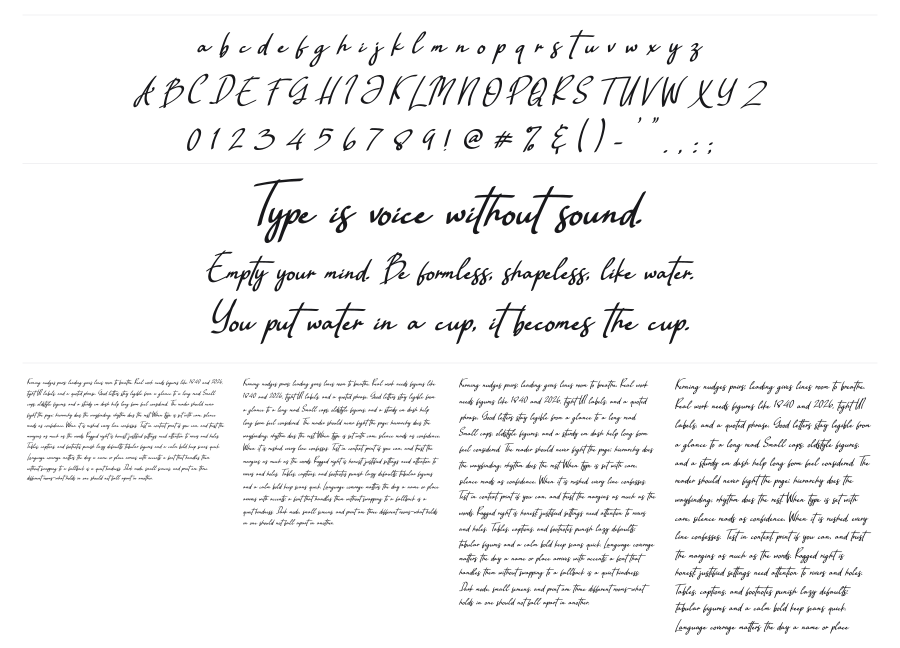 a b c d e f g h i j k l m n o p q r s t u v w x y z
A B C D E F G H I J K L M N O P Q R S T U V W X Y Z
0 1 2 3 4 5 6 7 8 9 ! @ # % & ( ) - ' " . , : ;
Type is voice without sound.
Empty your mind. Be formless, shapeless, like water.
You put water in a cup, it becomes the cup.
Kerning nudges pairs; leading gives lines room to breathe. Real work needs figures like 18:40 and 2026,
tight UI labels, and a quoted phrase. Good letters stay legible from a glance to a long read. Small
caps, oldstyle figures, and a sturdy en dash help long form feel considered. The reader should never
fight the page: hierarchy does the wayfinding; rhythm does the rest. When type is set with care, silence
reads as confidence. When it is rushed, every line confesses. Test in context, print if you can, and trust the
margins as much as the words. Ragged right is honest; justified settings need attention to rivers and holes.
Tables, captions, and footnotes punish lazy defaults; tabular figures and a calm bold keep scans quick.
Language coverage matters the day a name or place arrives with accents; a font that handles them
without swapping to a fallback is a quiet kindness. Dark mode, small screens, and print are three
different rooms—what holds in one should not fall apart in another.
Kerning nudges pairs; leading gives lines room to breathe. Real work needs figures like
18:40 and 2026, tight UI labels, and a quoted phrase. Good letters stay legible from
a glance to a long read. Small caps, oldstyle figures, and a sturdy en dash help
long form feel considered. The reader should never fight the page: hierarchy does the
wayfinding; rhythm does the rest. When type is set with care, silence reads as confidence.
When it is rushed, every line confesses. Test in context, print if you can, and trust the
margins as much as the words. Ragged right is honest; justified settings need attention to
rivers and holes. Tables, captions, and footnotes punish lazy defaults; tabular figures
and a calm bold keep scans quick. Language coverage matters the day a name or place
arrives with accents; a font that handles them without swapping to a fallback is a
quiet kindness. Dark mode, small screens, and print are three different rooms—what holds
in one should not fall apart in another.
Kerning nudges pairs; leading gives lines room to breathe. Real work
needs figures like 18:40 and 2026, tight UI labels, and a quoted
phrase. Good letters stay legible from a glance to a long read.
Small caps, oldstyle figures, and a sturdy en dash help long form
feel considered. The reader should never fight the page: hierarchy does
the wayfinding; rhythm does the rest. When type is set with care,
silence reads as confidence. When it is rushed, every line confesses.
Test in context, print if you can, and trust the margins as much as the
words. Ragged right is honest; justified settings need attention to rivers
and holes. Tables, captions, and footnotes punish lazy defaults;
tabular figures and a calm bold keep scans quick. Language coverage
matters the day a name or place arrives with accents; a font that
handles them without swapping to a fallback is a quiet kindness.
Dark mode, small screens, and print are three different rooms—what
holds in one should not fall apart in another.
Kerning nudges pairs; leading gives lines room to breathe.
Real work needs figures like 18:40 and 2026, tight UI
labels, and a quoted phrase. Good letters stay legible from
a glance to a long read. Small caps, oldstyle figures,
and a sturdy en dash help long form feel considered. The
reader should never fight the page: hierarchy does the
wayfinding; rhythm does the rest. When type is set with
care, silence reads as confidence. When it is rushed, every
line confesses. Test in context, print if you can, and trust
the margins as much as the words. Ragged right is
honest; justified settings need attention to rivers and holes.
Tables, captions, and footnotes punish lazy defaults;
tabular figures and a calm bold keep scans quick.
Language coverage matters the day a name or place